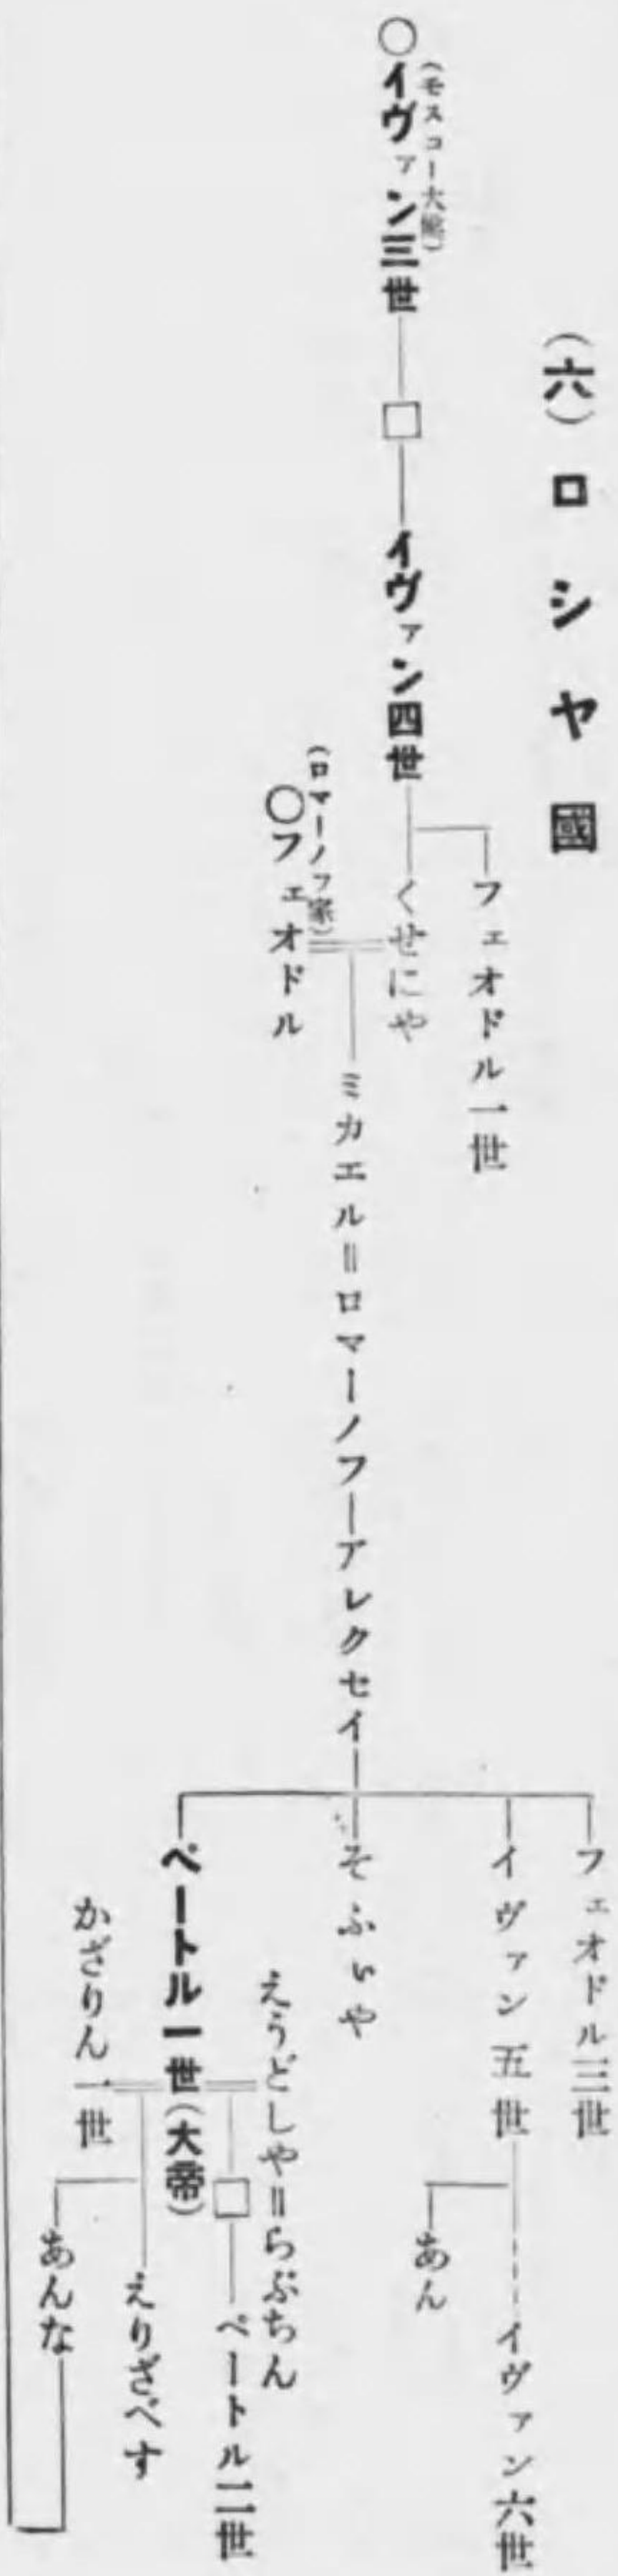 (六)ロシヤ國
(モスコー大公)
○イヴァン三世
□
イヴァン四世
フェオドル一世
くせにや
(ロマーノフ家)
○フェオドル
ミカエル=ロマーノフ―アレクセイ
フェオドル三世
イヴァン五世
イヴァン六世
あん
そふぃや
えうどしや=らぷちん
ペートル一世(大帝)
□
ペートル二世
かざりん一世
えりざべす
あんな